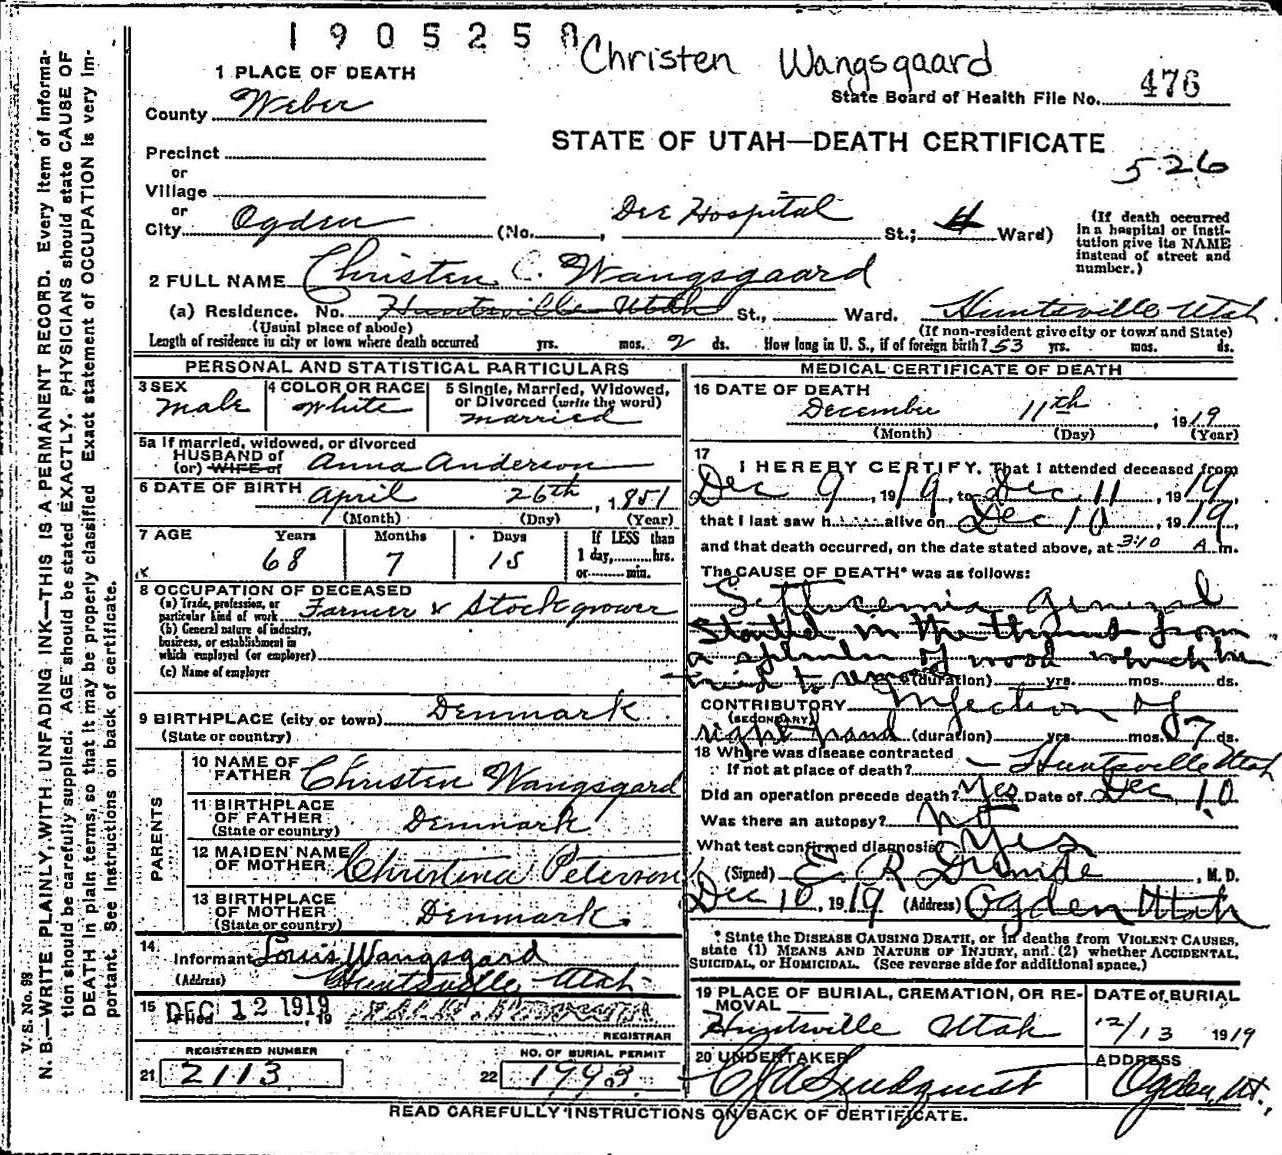 1905258
Christen Wangsgaard
1 PLACE OF DEATH
County Weber
State Board of Health File No. 476
STATE OF UTAH—DEATH CERTIFICATE
526
Precinct
or
Village
or
City Ogden (No. , Dee Hospital St.; 4 Ward)
(If death occurred in a hospital or institution give its NAME instead of street and number.)
2 FULL NAME Christen C. Wangsgaard
(a) Residence. No. Huntsville Utah St., Ward. Huntsville Utah.
(Usual place of abode) (If non-resident give city or town and State)
Length of residence in city or town where death occurred yrs. mos. 2 ds. How long in U. S., if of foreign birth? 53 yrs. mos. ds.
PERSONAL AND STATISTICAL PARTICULARS
3 SEX male
4 COLOR OR RACE White
5 Single, Married, Widowed, or Divorced (write the word) married
5a If married, widowed, or divorced
HUSBAND of
(or) WIFE of Anna Anderson
6 DATE OF BIRTH April 26th, 1851
(Month) (Day) (Year)
7 AGE Years Months Days If LESS than
68 7 15 1 day, hrs.
or min.
8 OCCUPATION OF DECEASED
(a) Trade, profession, or particular kind of work Farmer & Stockgrower
(b) General nature of industry, business, or establishment in which employed (or employer)
(c) Name of employer
9 BIRTHPLACE (city or town) Denmark
(State or country)
PARENTS
10 NAME OF FATHER Christen Wangsgard
11 BIRTHPLACE OF FATHER (State or country) Denmark
12 MAIDEN NAME OF MOTHER Christina Peterson
13 BIRTHPLACE OF MOTHER (State or country) Denmark.
14. Informant Louis Wangsgard
(Address) Huntsville, Utah
15 Filed DEC 12 1919, 19
REGISTRAR
REGISTERED NUMBER
21 2113
NO. OF BURIAL PERMIT
22
MEDICAL CERTIFICATE OF DEATH
16 DATE OF DEATH
December 11th, 1919
(Month) (Day) (Year)
17 I HEREBY CERTIFY, That I attended deceased from
Dec 9, 1919, to Dec, 11, 1919,
that I last saw h alive on Dec 10, 1919,
and that death occurred, on the date stated above, at 3:10 A m.
The CAUSE OF DEATH* was as follows:
Septicemia general
Started in the thumb from
a splinter of wood which he
tried to remove (duration) yrs. mos. ds.
CONTRIBUTORY Infection of
(SECONDARY)
right hand (duration) yrs. mos. 7 ds.
18 Where was disease contracted
If not at place of death? Huntsville Utah
Did an operation precede death? Yes Date of Dec 10
Was there an autopsy? No
What test confirmed diagnosis Yes
(Signed) E. R. , M. D.
Dec 10, 1919 (Address) Ogden Utah
* State the DISEASE CAUSING DEATH, or in deaths from VIOLENT CAUSES, state (1) MEANS AND NATURE OF INJURY, and (2) whether ACCIDENTAL, SUICIDAL, or HOMICIDAL. (See reverse side for additional space.)
19 PLACE OF BURIAL, CREMATION, OR REMOVAL Huntsville Utah
DATE of BURIAL 12/13 1919
20 UNDERTAKER
ADDRESS Ogden, Ut.,
READ CAREFULLY INSTRUCTIONS ON BACK OF CERTIFICATE.
V. S. No. 98
N. B.—WRITE PLAINLY, WITH UNFADING INK—THIS IS A PERMANENT RECORD. Every item of information should be carefully supplied. AGE should be stated EXACTLY. PHYSICIANS should state CAUSE OF DEATH in plain terms, so that it may be properly classified. Exact statement of OCCUPATION is very important. See Instructions on back of certificate.